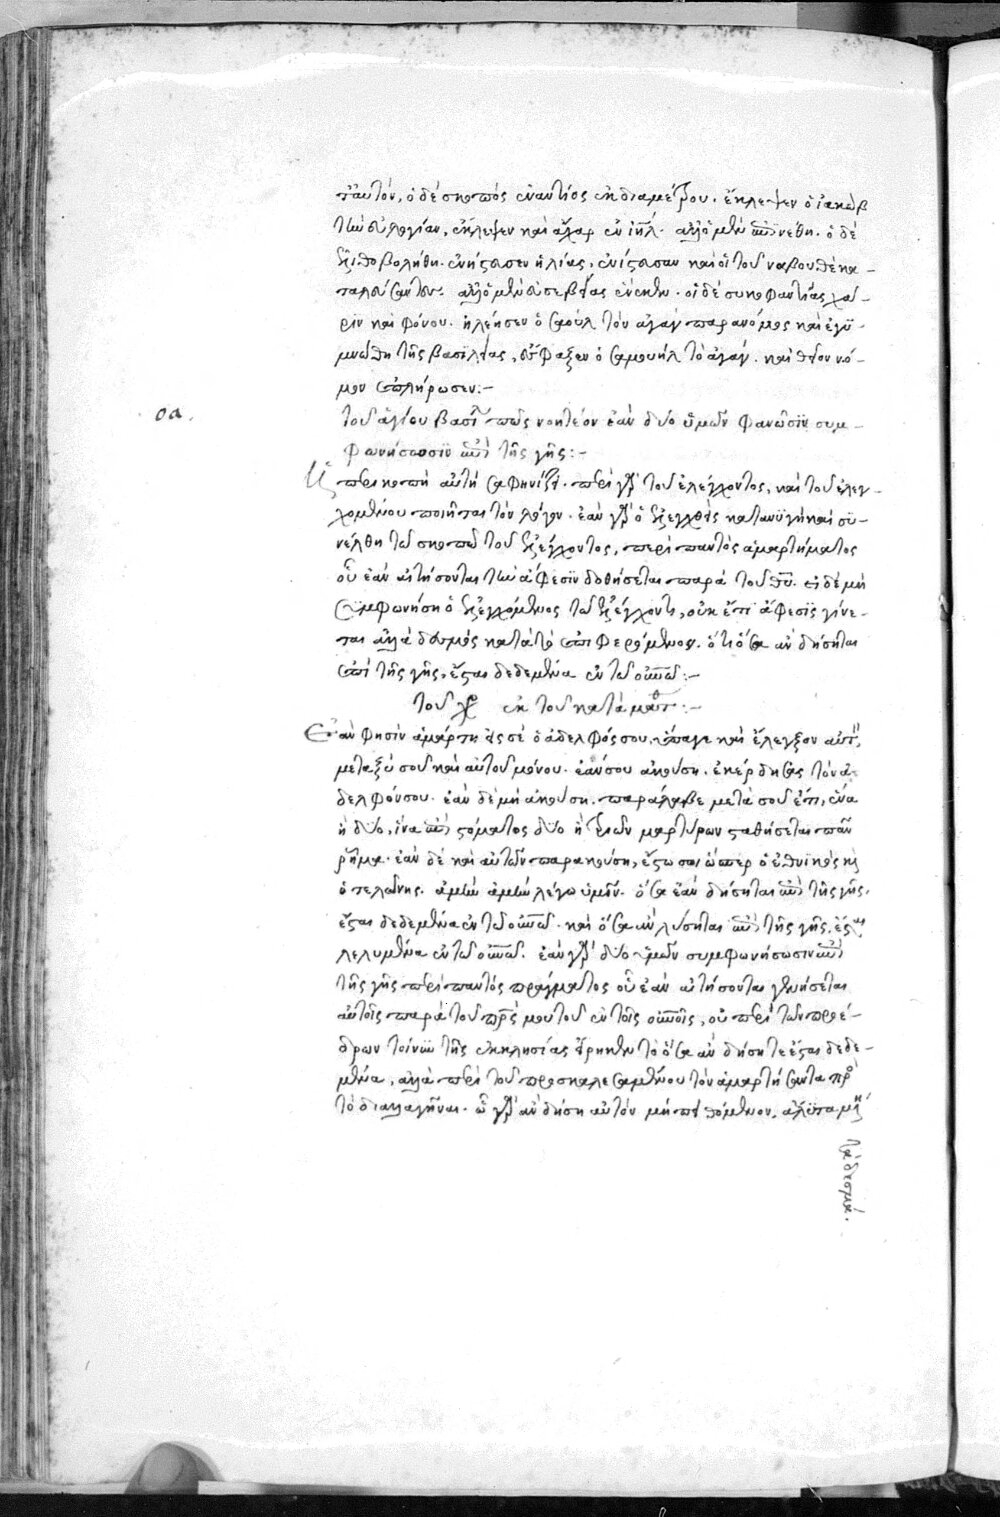 ταυτόν, ὁ δὲ σκοπὸς ἐναντίος ἐκ διαμέτρου. ἔκλεψεν ὁ ἰακὼβ
τὴν εὐλογίαν, ἔκλεψεν καὶ ἄχαρ ἐν ἰηλ. ἀλλ' ὁ μὲν ἐπῃνέθη. ὁ δὲ
ἐλιθοβολήθη. ἐνήστευσεν ἡλίας, ἐνίστευσαν καὶ οἱ τοῦ ναβουθὲ κα-
ταλεύσαντες. ἀλλ' ὁ μὲν εὐσεβείας ἕνεκεν. οἱ δὲ συκοφαντίας χά-
ριν καὶ φόνου. ἠλέησεν ὁ σαοὺλ τὸν ἀγὰγ παρανόμως καὶ ἐγυ-
μνώθη τῆς βασιλείας, ἔσφαξεν ὁ σαμουὴλ τὸ ἀγάγ. καὶ θεῖον νό-
μον ἐπλήρωσεν:-
οα.
τοῦ ἁγίου βασι πῶς νοητέον ἐὰν δύο ὑμῶν φανῶσιν συμ-
φωνήσωσιν ἐπὶ τῆς γῆς:-
Ἡ περικοπὴ αὐτὴ σαφηνίζει. περὶ γὰρ τοῦ ἐλέγχοντος, καὶ τοῦ ἐλεγ-
χομένου ποιῆται τὸν λόγον. ἐὰν γὰρ ὁ ἐλεγχθεὶς κατανυγῆ καὶ συ-
νέλθη τῶ σκοπῶ τοῦ ἐλέγχοντος, περὶ παντὸς ἁμαρτήματος
οὗ ἐὰν αἰτήσονται τὴν ἄφεσιν δοθήσεται παρὰ τοῦ θυ. εἰ δὲ μὴ
συμφωνήση ὁ ἐλεγχόμενος τῶ ἐλέγχοντι, οὐκ ἔτι ἄφεσις γίνε-
ται ἀλλὰ δεσμὸς κατὰ τὸ ἐπιφερόμενον. ὅτι ὅσα ἂν δήσηται
ἐπὶ τῆς γῆς, ἔσται δεδεμένα ἐν τῶ οὐνῶ:-
τοῦ χρ ἐκ τοῦ κατὰ ματθ:-
Ἐὰν φησὶν ἁμάρτη εἰς σὲ ὁ ἀδελφός σου, ὕπαγε καὶ ἔλεγξον αὐτ,
μεταξύ σου καὶ αὐτοῦ μόνου. ἐάν σου ἀκούση. ἐκέρδησας τὸν ἀ-
δελφόν σου. ἐὰν δὲ μὴ ἀκούση. παράλαβε μετὰ σοῦ ἔτι, ἕνα
ἢ δύο, ἵνα ἐπὶ στόματος δύο ἢ τριῶν μαρτύρων σταθήσεται πᾶν
ρῆμα. ἐὰν δὲ καὶ αὐτῶν παρακούση, ἔστω σοι ὥσπερ ὁ ἐθνικὸς καὶ
ὁ τελώνης. ἀμὴν ἀμὴν λέγω ὑμῖν. ὅσα ἐὰν δήσηται ἐπὶ τῆς γῆς.
ἔσται δεδεμένα ἐν τῶ οὐνῶ. καὶ ὅσα ἂν λύσηται ἐπὶ τῆς γῆς. ἔσται
λελυμένα ἐν τῶ οὐνῶ. ἐὰν γὰρ δύο ὑμῶν συμφωνήσωσιν ἐπὶ
τῆς γῆς περὶ παντὸς πράγματος οὗ ἐὰν αἰτήσονται γενήσεται
αὐτοῖς παρὰ τοῦ πρς μου τοῦ ἐν τοῖς οὐνοῖς, οὐ περὶ τῶν προέ-
δρων τοίνυν τῆς ἐκκλησίας εἴρηκεν τὸ ὅσα ἂν δήσητε ἔσται δεδε-
μένα, ἀλλὰ περὶ τοῦ προσκαλεσαμένου τὸν ἁμαρτήσαντα πρὸς
τὸ διαλλαγῆναι. ὡ γὰρ ἂν δήση αὐτὸν μὴ πειθόμενον, ἄλυτα μὴ
τὰ δεσμά.